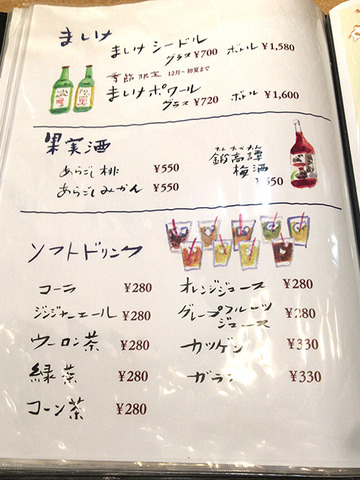 まいけ
まいけ シードル
グラス ¥700 ボトル ¥1,580
季節限定 12月〜初夏まで
まいけ ポワール
グラス ¥720 ボトル ¥1,600
果実酒
あらごし桃 ¥550
あらごしみかん ¥550
梅酒
ソフトドリンク
コーラ ¥280
ジンジャーエール ¥280
ウーロン茶 ¥280
緑茶 ¥280
コーン茶 ¥280
オレンジジュース ¥280
グレープフルーツ
ジュース ¥280
カツゲン ¥330
ガラナ ¥330